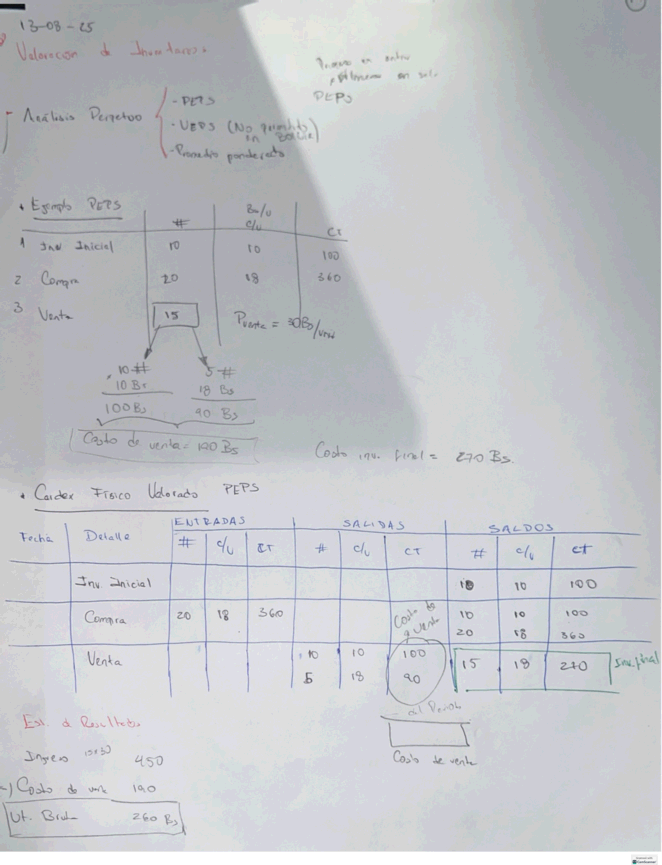 13-08-25
Valoracion de Inventarios
Primero en entrar
primero en salir
PEPS
Análisis Perpetuo
- PEPS
- UEPS (No permitido en Bolivia)
- Promedio ponderado
• Ejemplo PEPS
# Bs/u c/u CT
1 Inv Inicial 10 10 100
2 Compra 20 18 360
3 Venta 15 Pventa = 30Bs/unit
10 # 5 #
10 Bs 18 Bs
100 Bs 90 Bs
Costo de venta = 190 Bs
Costo inv. final = 270 Bs.
• Cardex Físico Valorado PEPS
ENTRADAS SALIDAS SALDOS
Fecha Detalle # c/u CT # c/u CT # c/u CT
Inv Inicial 10 10 100
Compra 20 18 360 Costo de venta 10 10 100
20 18 360
Venta 10 10 100 15 18 270 Inv. final
5 18 90
Est. d Resultados
Ingreso 15x30 450
(-) Costo de vent 190
Ut. Brut 260 Bs
Costo de venta